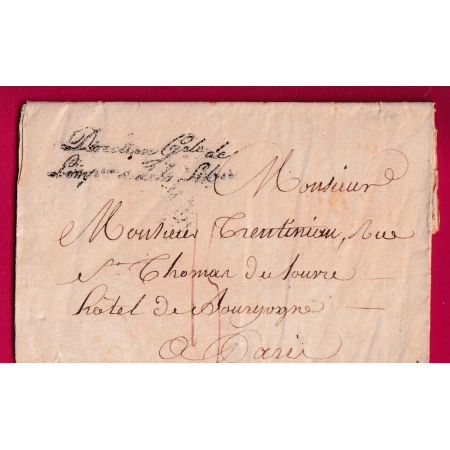 Direction Gale de
L'imprimerie & de la Librie
Monsieur
Monsieur Trentinian, Rue
St Thomas du louvre
hôtel de Bourgogne
a Paris